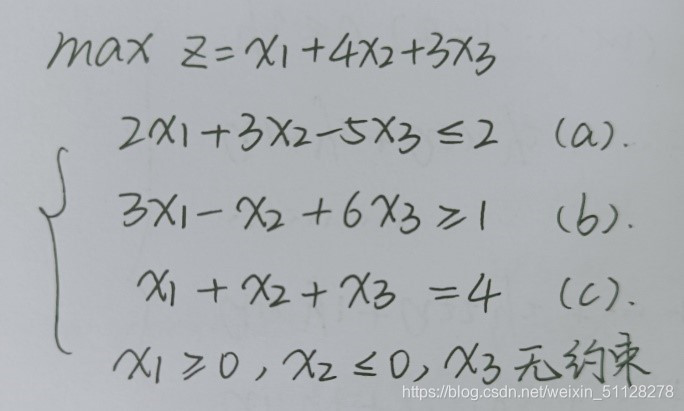 max z=x1+4x2+3x3
2x1+3x2-5x3≤2 (a).
3x1-x2+6x3≥1 (b).
x1+x2+x3=4 (c).
x1≥0,x2≤0,x3无约束
https://blog.csdn.net/weixin_51128278